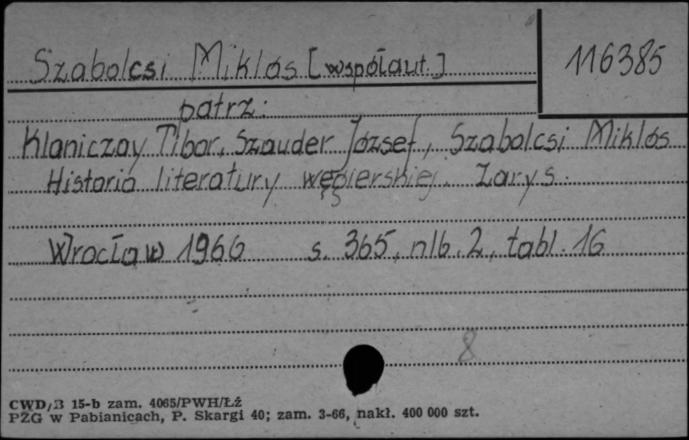 Szabolcsi Miklós [współaut.]
116385
patrz:
Klaniczay Tibor, Szauder József, Szabolcsi Miklós
Historia literatury węgierskiej. Zarys.
Wrocław 1966 s. 365, nlb. 2, tabl. 16
8
CWD/B 15-b zam. 4065/PWH/Łź
PZG w Pabianicach, P. Skargi 40; zam. 3-66, nakł. 400 000 szt.